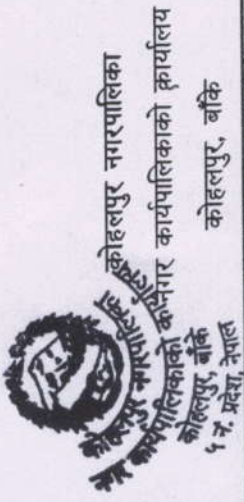 कोहलपुर नगरपालिका
नगर कार्यपालिकाको कार्यालय
कोहलपुर, बाँके
कोहलपुर नगरपालिका
नगर कार्यपालिकाको कार्यालय
कोहलपुर, बाँके
५ नं. प्रदेश, नेपाल